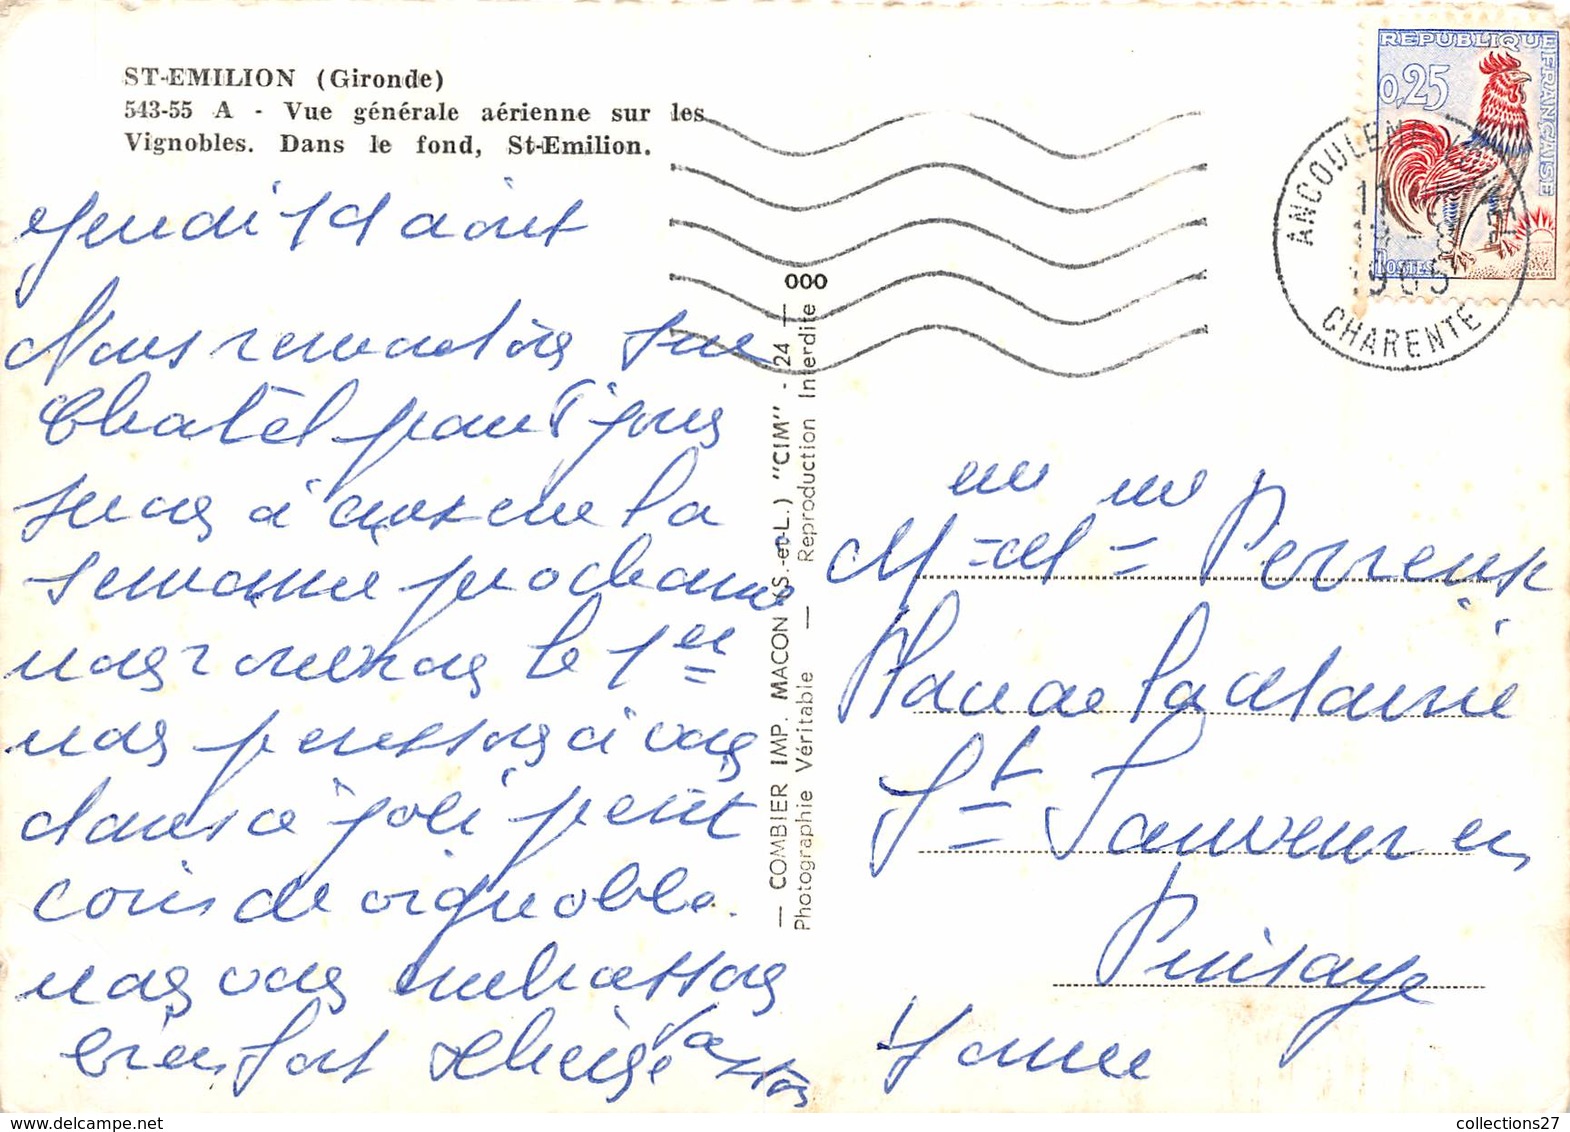 ST-EMILION (Gironde)
543-55 A - Vue générale aérienne sur les
Vignobles. Dans le fond, St-Emilion.
Jeudi 19 août
Nous remontons sur
Chatel pour jours
puis à Auxerre la
semaine prochaine
nous rouvrons le 1er
nous pensons à vous
dans ce joli petit
coin de vignoble.
nous vous embrassons
bien fort
— COMBIER IMP. MACON (S.-et-L.) "CIM" - 24 —
Photographie Véritable — Reproduction Interdite
000
REPUBLIQUE FRANÇAISE
0,25
POSTES
ANGOULEME
1965
CHARENTE
Mme et Mme Perreux
Place de la Mairie
St Sauveur en
Puisaye
Yonne
collections27